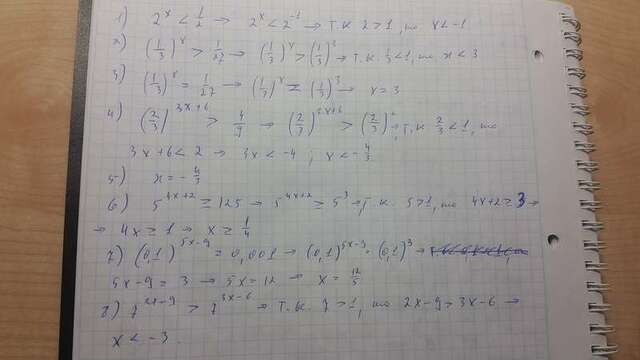 1) 2^x < 1/2 → 2^x < 2^-1 → т.к 2 > 1, то x < -1
2) (1/3)^x > 1/27 → (1/3)^x > (1/3)^3 → т.к. 1/3 < 1, то x < 3
3) (1/3)^x = 1/27 → (1/3)^x = (1/3)^3 → x = 3
4) (2/3)^3x+6 > 4/9 → (2/3)^3x+6 > (2/3)^2, т.к. 2/3 < 1, то
3x + 6 < 2 → 3x < -4 ; x < -4/3
5) x = -4/3
6) 5^4x+2 ≥ 125 → 5^4x+2 ≥ 5^3 → т.к. 5 > 1, то 4x+2 ≥ 3 →
→ 4x ≥ 1 → x ≥ 1/4
7) (0,1)^5x-9 = 0,001 → (0,1)^5x-9 = (0,1)^3 →
5x - 9 = 3 → 5x = 12 → x = 12/5
8) 7^2x-9 > 7^3x-6 → т.к. 7 > 1, то 2x-9 > 3x-6 →
x < -3.